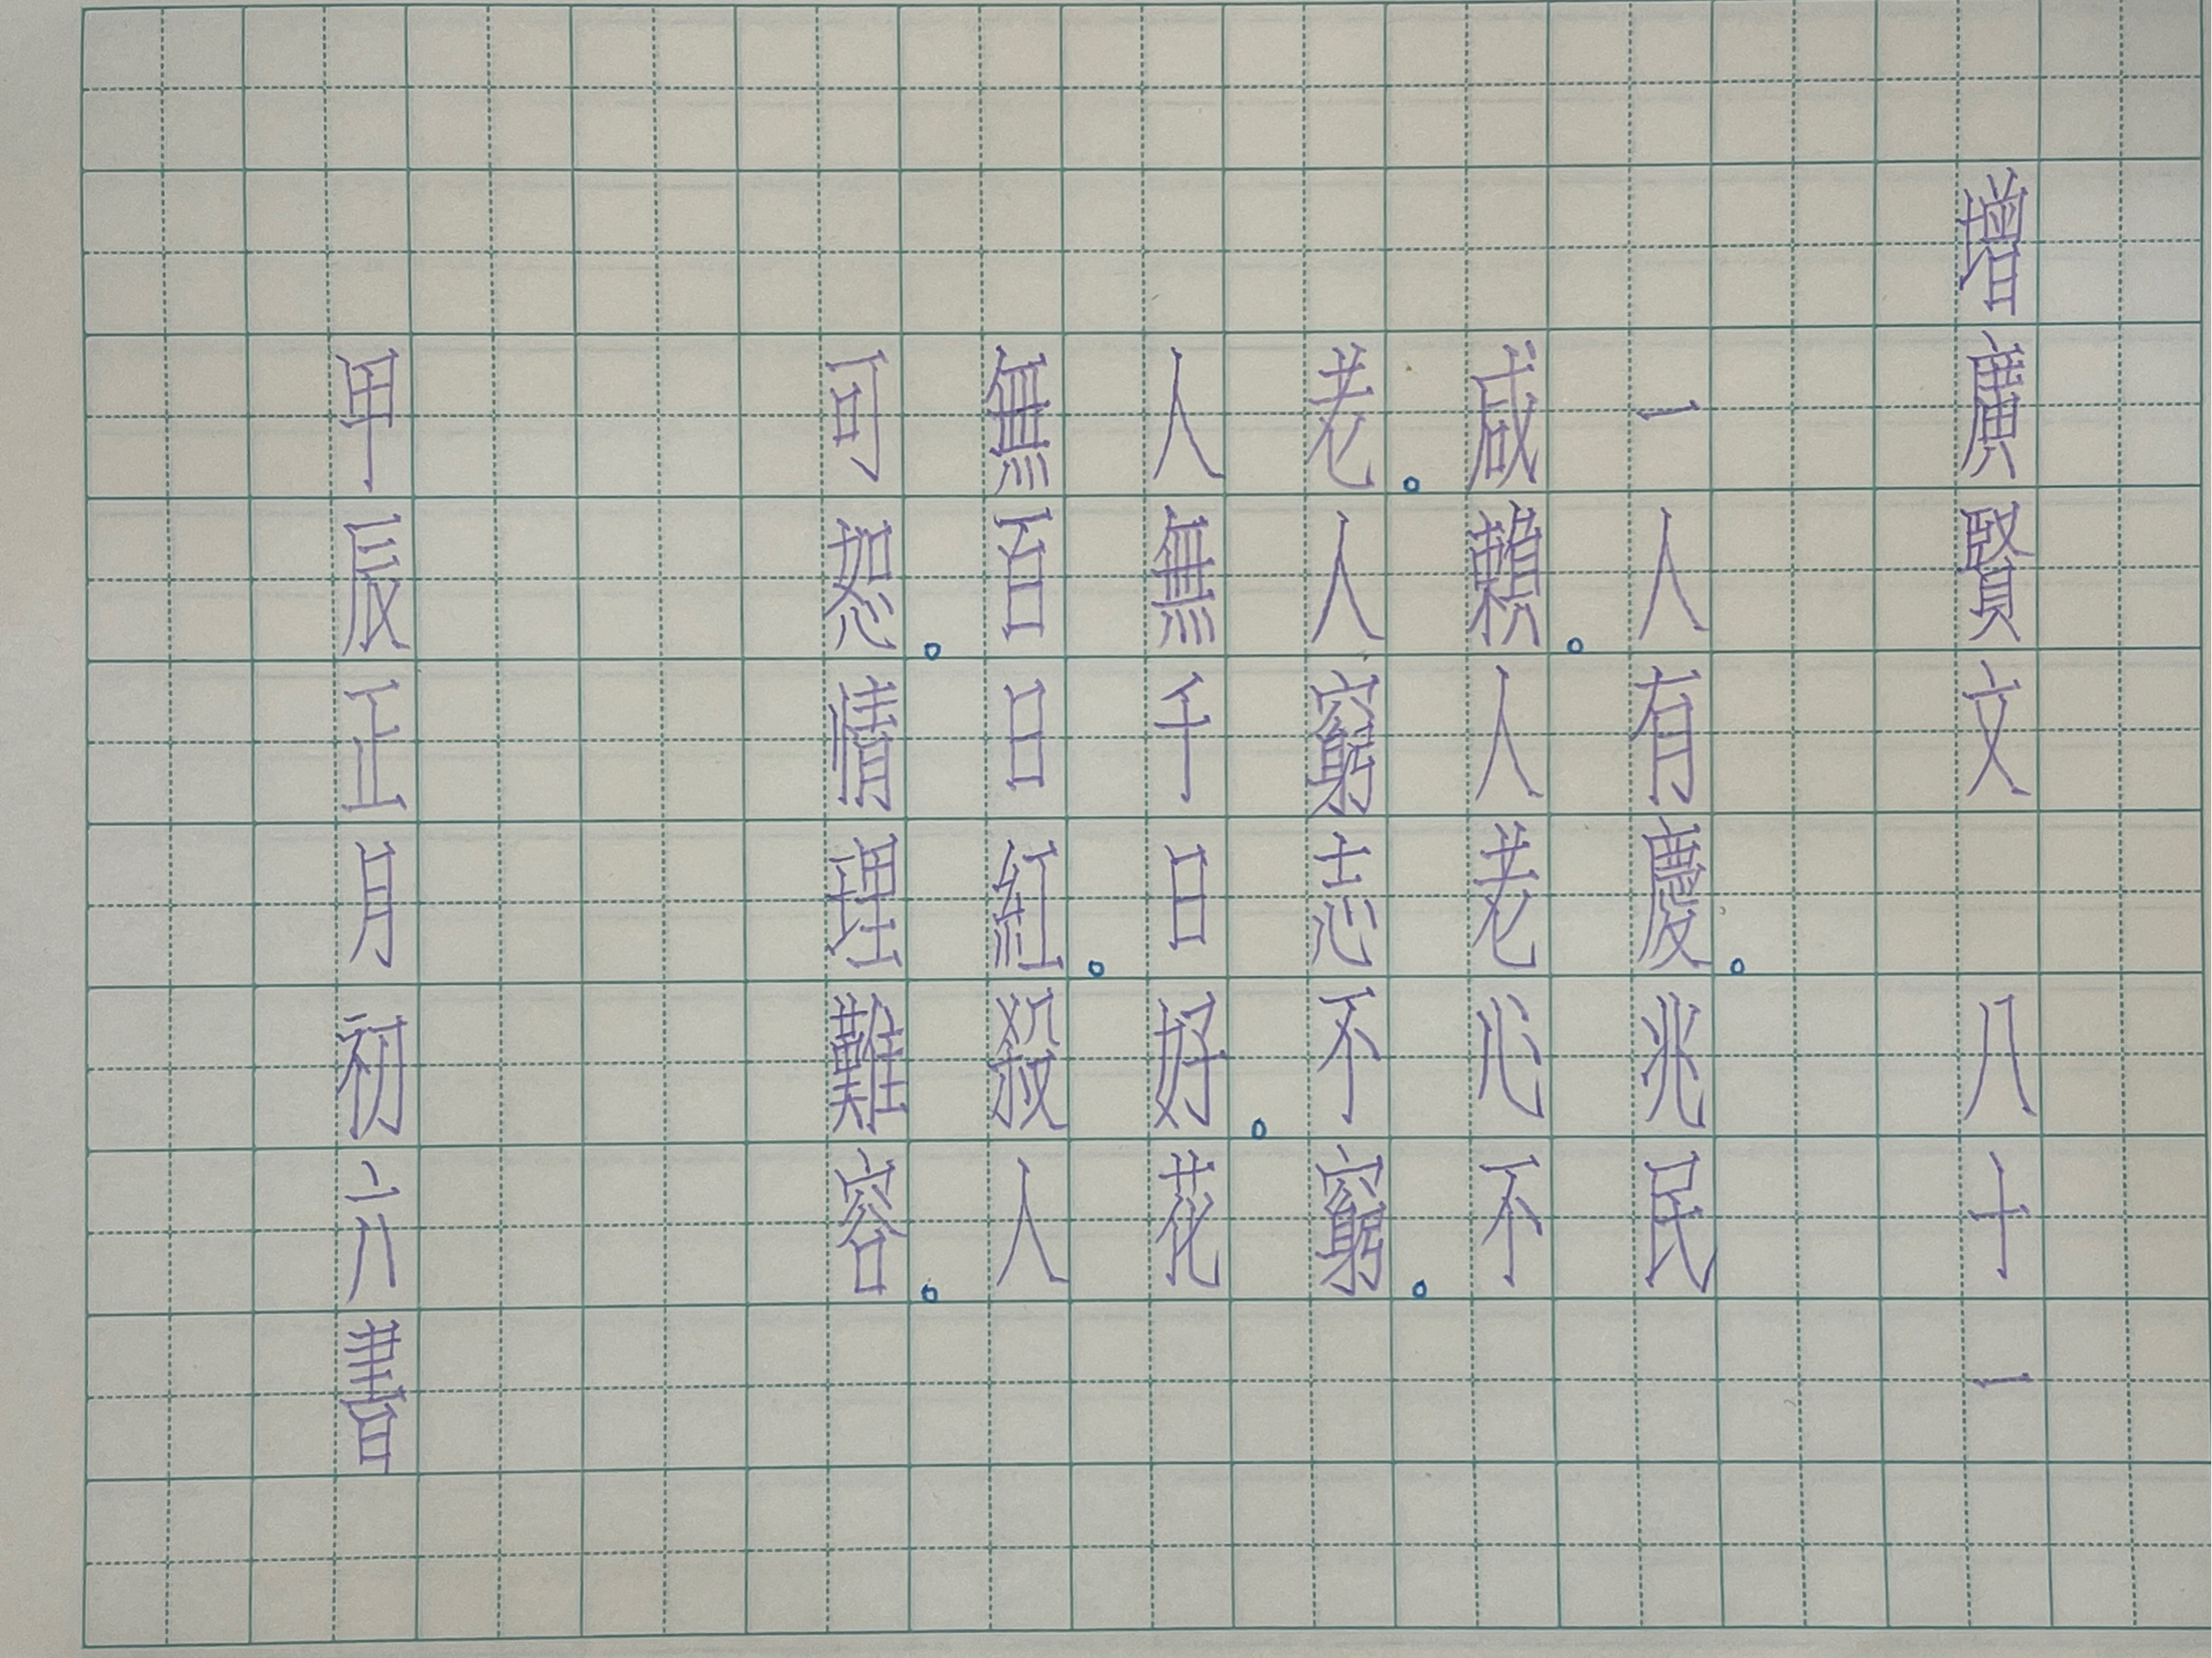 增廣賢文 八十一
一人有慶。兆民
咸賴。人老心不
老。人窮志不窮。
人無千日好。花
無百日紅。殺人
可恕。情理難容。
甲辰正月初六書